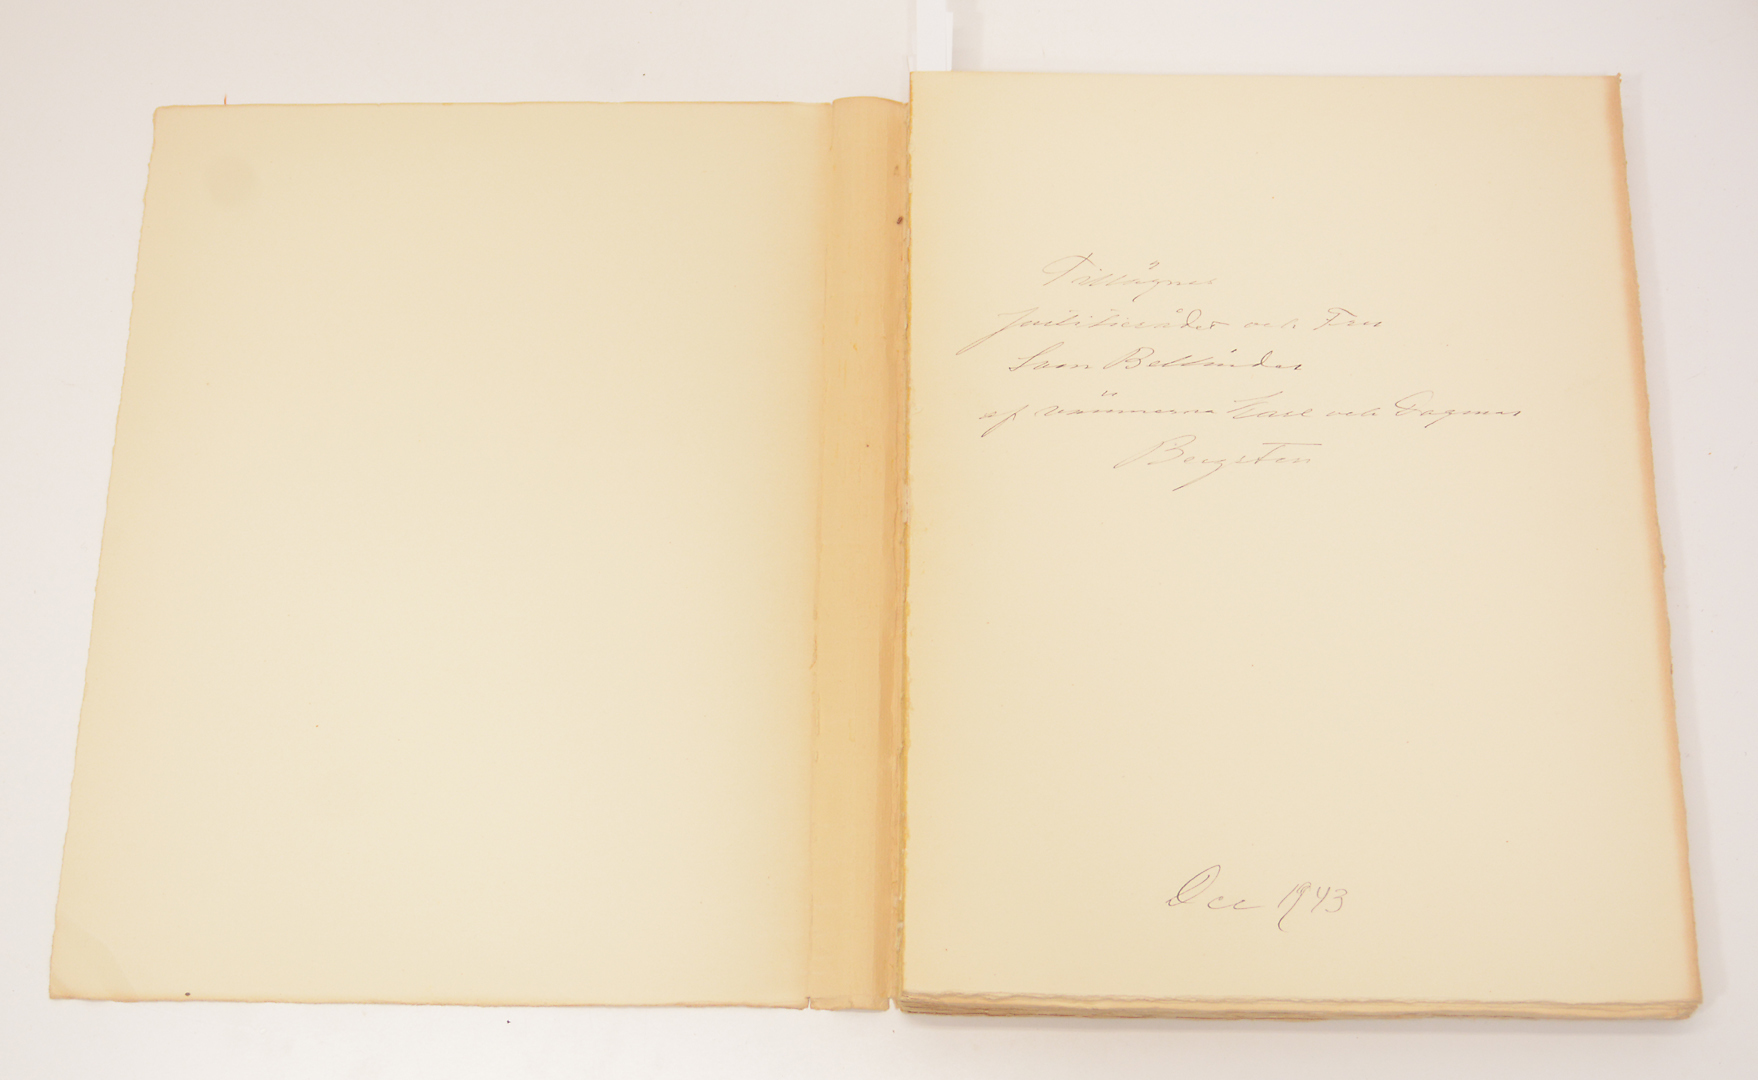 Tillägnas
justitierådet och Fru
Sven Bellinder
af vännerna Karl och Dagmar
Bergsten
Dec 1943